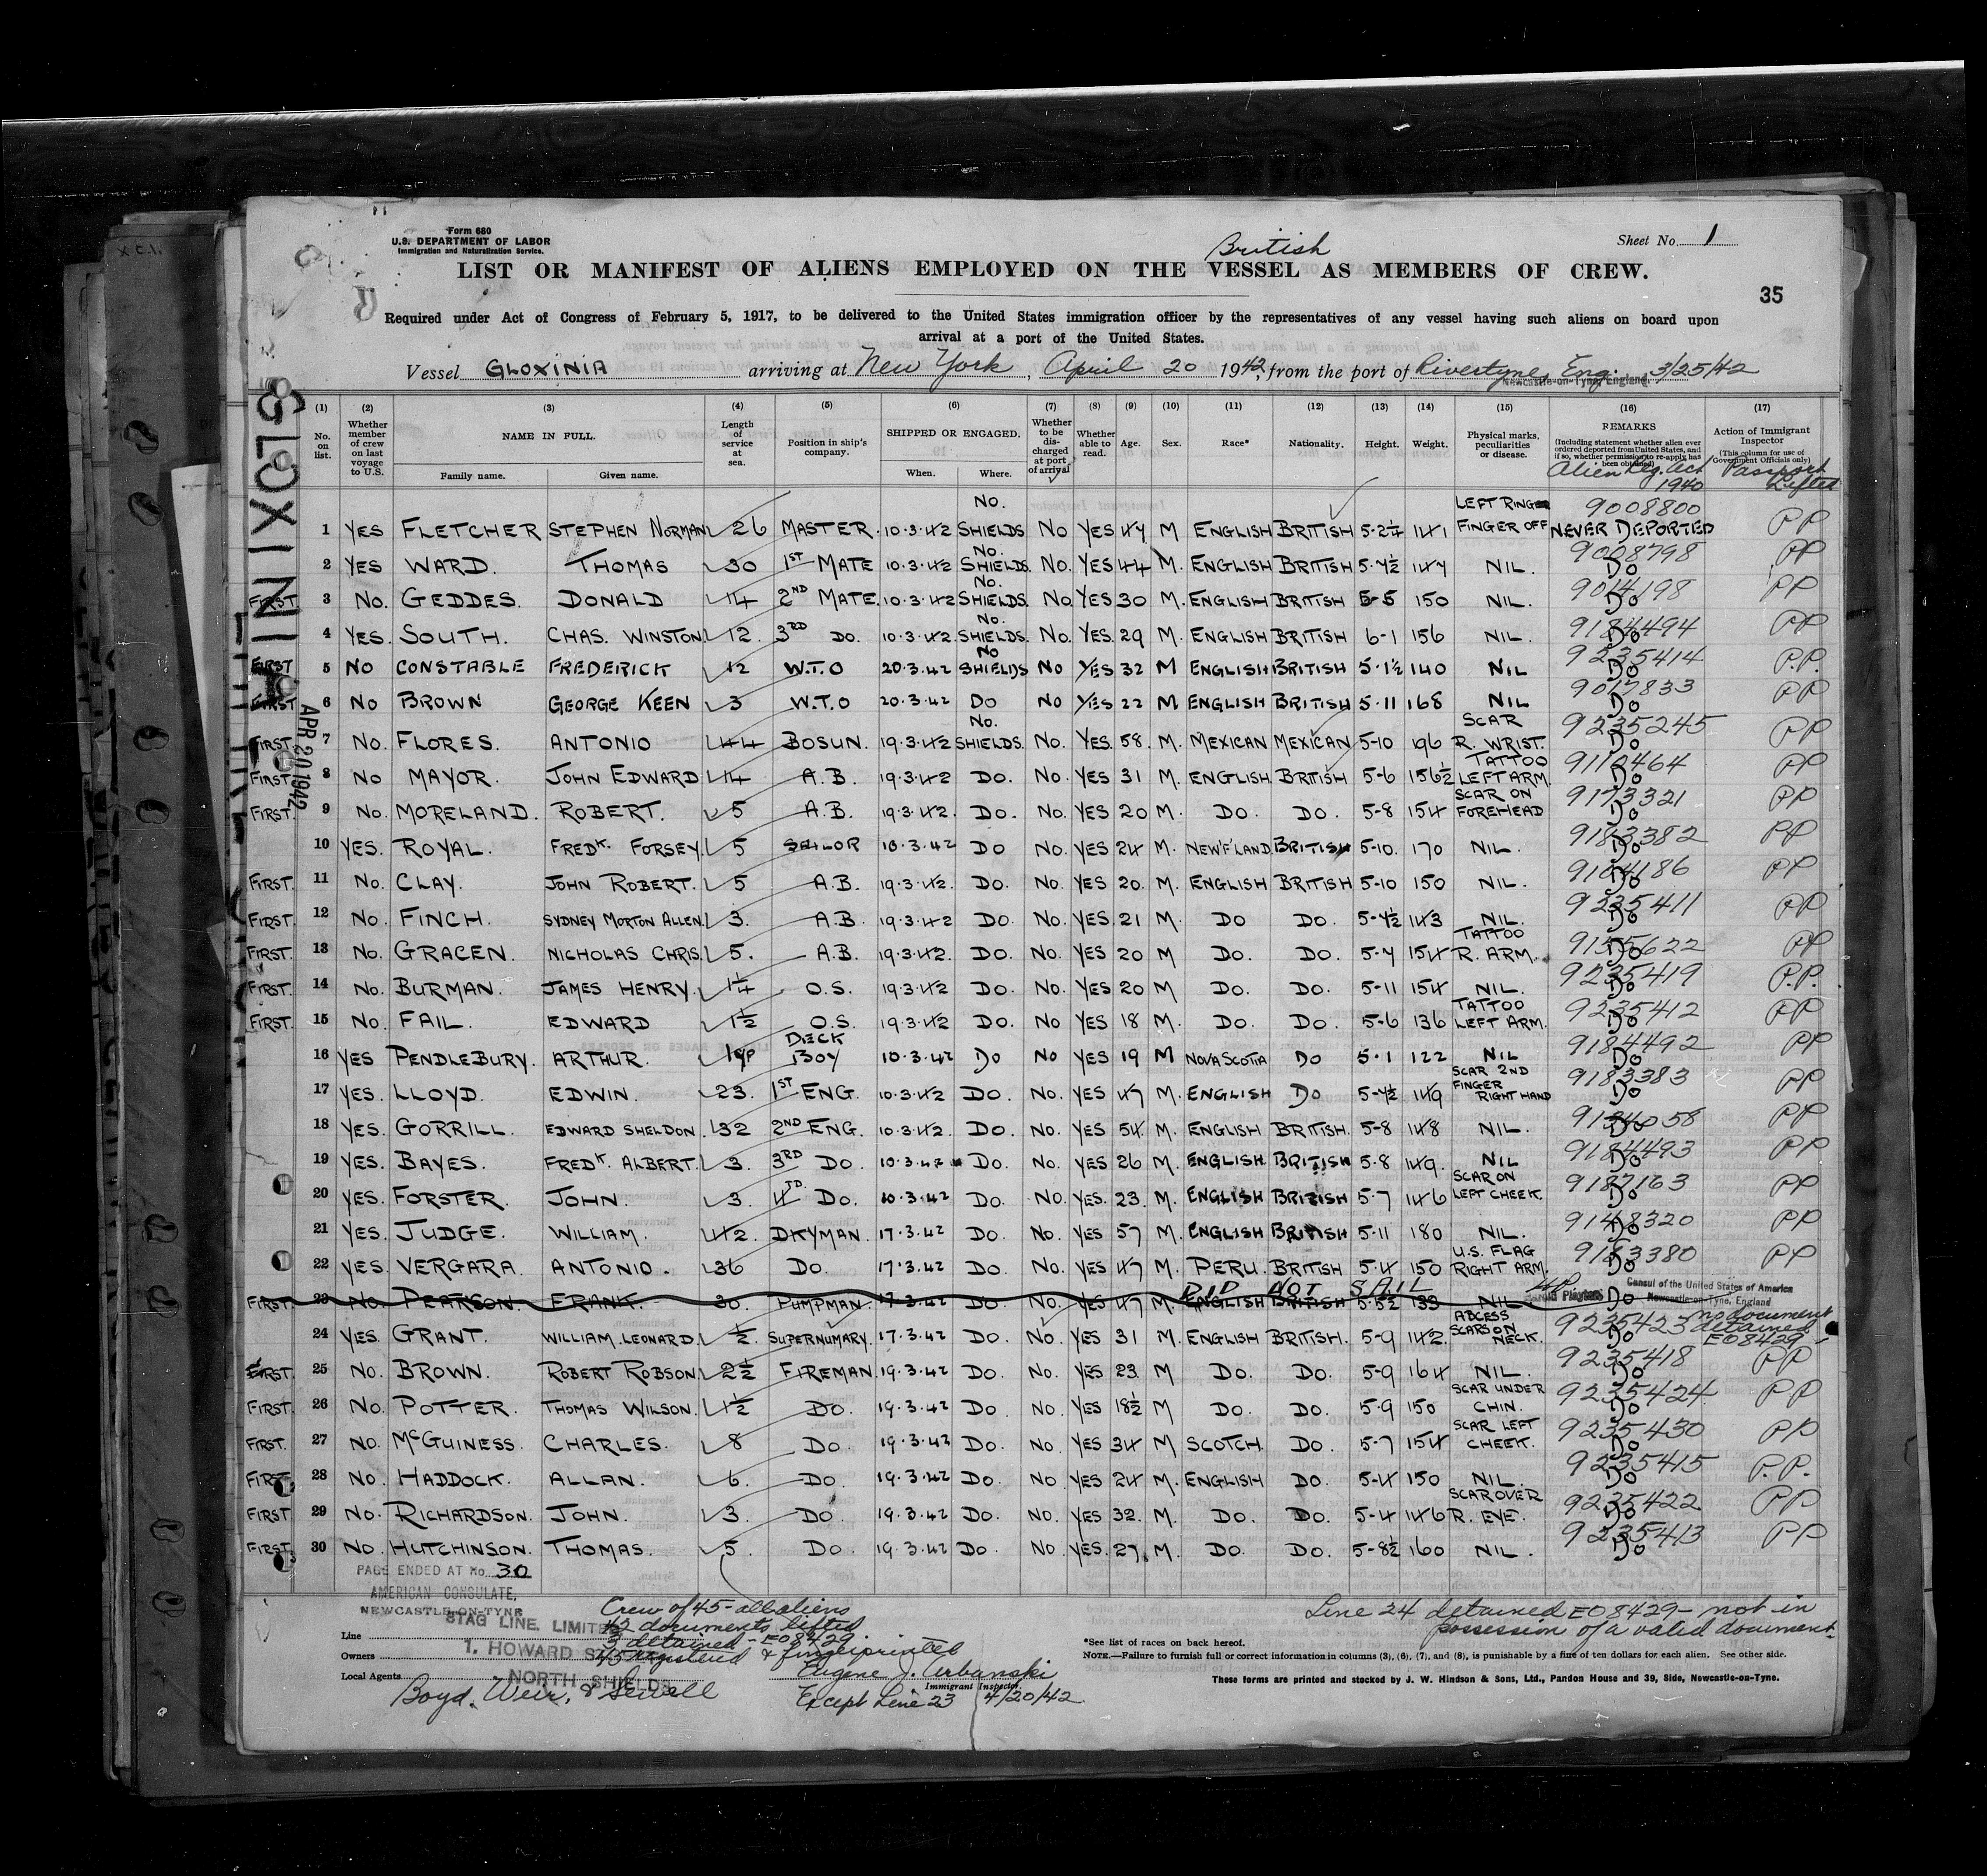 Form 680
U.S. DEPARTMENT OF LABOR
Immigration and Naturalization Service.
Sheet No. 1
British
LIST OR MANIFEST OF ALIENS EMPLOYED ON THE VESSEL AS MEMBERS OF CREW.
35
Required under Act of Congress of February 5, 1917, to be delivered to the United States immigration officer by the representatives of any vessel having such aliens on board upon
arrival at a port of the United States.
Vessel GLOXINIA arriving at New York, April 20 1942, from the port of Rivertyne, Eng. 3/25/42
Newcastle-on-Tyne, England
GLOXINIA
APR 20 1942
(1) (2) (3) (4) (5) (6) (7) (8) (9) (10) (11) (12) (13) (14) (15) (16) (17)
No. on list. Whether member of crew on last voyage to U.S. NAME IN FULL. Family name. Given name. Length of service at sea. Position in ship's company. SHIPPED OR ENGAGED. When. Where. Whether to be discharged at port of arrival Whether able to read. Age. Sex. Race* Nationality. Height. Weight. Physical marks, peculiarities or disease. REMARKS (Including statement whether alien ever ordered deported from United States, and if so, whether permission to re-apply has been obtained) Action of Immigrant Inspector (This column for use of Government Officials only)
Alien Reg. Act 1940 Passport Lifted
1 YES FLETCHER STEPHEN NORMAN 26 MASTER. 10.3.42 NO. SHIELDS NO YES 47 M ENGLISH BRITISH 5-2¼ 141 LEFT RING FINGER OFF 9008800 NEVER DEPORTED PP
2 YES WARD. THOMAS 30 1ST MATE 10.3.42 NO. SHIELDS. NO. YES 44 M. ENGLISH BRITISH 5-7½ 147 NIL. 9008798 DO PP
FIRST 3 NO. GEDDES. DONALD 14 2ND MATE. 10.3.42 NO. SHIELDS. NO. YES 30 M. ENGLISH BRITISH 5-5 150 NIL. 9014198 DO PP
4 YES. SOUTH. CHAS. WINSTON 12. 3RD DO. 10.3.42. NO. SHIELDS. NO. YES. 29 M. ENGLISH BRITISH 6-1 156 NIL. 9184494 DO PP
FIRST 5 NO CONSTABLE FREDERICK 12 W.T.O 20.3.42 NO SHIELDS NO YES 32 M ENGLISH BRITISH 5-1½ 140 NIL 9235414 DO P.P.
FIRST 6 NO BROWN GEORGE KEEN 3 W.T.O 20.3.42 DO NO YES 22 M ENGLISH BRITISH 5-11 168 NIL 9017833 DO PP
FIRST. 7 NO. FLORES. ANTONIO 44 BOSUN. 19.3.42 NO. SHIELDS. NO. YES. 58. M. MEXICAN MEXICAN 5-10 196 SCAR R. WRIST. 9235245 DO PP
FIRST. 8 NO MAYOR. JOHN EDWARD 14 A.B. 19.3.42 DO. NO. YES 31 M. ENGLISH BRITISH 5-6 156½ TATTOO LEFT ARM. 9110464 DO PP
FIRST. 9 NO. MORELAND. ROBERT. 5 A.B. 19.3.42. DO. NO. YES 20 M. DO. DO. 5-8 154 SCAR ON FOREHEAD 9173321 DO PP
10 YES. ROYAL. FREDK. FORSEY. 5 SAILOR 10.3.42 DO NO. YES 24 M. NEW'F'LAND. BRITISH 5-10. 170 NIL. 9183382 DO PP
FIRST. 11 NO. CLAY. JOHN ROBERT. 5 A.B. 19.3.42. DO. NO. YES 20. M. ENGLISH BRITISH 5-10 150 NIL. 9104186 DO PP
FIRST. 12 NO. FINCH. SYDNEY MORTON ALLEN. 3. A.B. 19.3.42 DO. NO. YES. 21 M. DO DO. 5-7½ 143 NIL. 9235411 DO PP
FIRST. 13 NO. GRACEN. NICHOLAS CHRIS. 5. A.B. 19.3.42. DO. NO. YES 20 M DO. DO. 5-7 154 TATTOO R. ARM. 9155622 DO PP
FIRST. 14 NO. BURMAN. JAMES HENRY. 1¼ O.S. 19.3.42 DO. NO. YES 20 M DO. DO. 5-11 154 NIL. 9235419 DO P.P.
FIRST. 15 NO. FAIL. EDWARD 1½ O.S. 19.3.42 DO. NO YES 18 M. DO. DO. 5-6 136 TATTOO LEFT ARM. 9235412 DO PP
16 YES PENDLEBURY. ARTHUR. DECK BOY 10.3.42 DO NO YES 19 M NOVA SCOTIA DO 5-1 122 NIL 9184492 DO PP
17 YES. LLOYD. EDWIN. 23. 1ST ENG. 10.3.42 DO. NO. YES 47 M. ENGLISH DO 5-7½ 149 SCAR 2ND FINGER RIGHT HAND 9183383 DO PP
18 YES. GORRILL. EDWARD SHELDON. 32 2ND ENG. 10.3.42. DO. NO. YES 54. M. ENGLISH BRITISH. 5-8 148 NIL. 9134058 DO PP
19 YES. BAYES. FREDK. ALBERT. 3. 3RD DO. 10.3.42 DO. NO. YES 26 M. ENGLISH BRITISH 5-8 149. NIL 9184493 DO PP
20 YES. FORSTER. JOHN. 3. 4TH DO. 10.3.42 DO. NO. YES. 23. M. ENGLISH BRITISH 5-7 146 SCAR ON LEFT CHEEK. 9187163 DO PP
21 YES. JUDGE. WILLIAM. 42. DKYMAN. 17.3.42 DO. NO. YES 57 M. ENGLISH BRITISH 5-11 180 NIL. 9148320 DO PP
22 YES. VERGARA. ANTONIO. 36 DO. 17.3.42 DO. NO. YES 47 M. PERU. BRITISH 5-4 150 U.S. FLAG RIGHT ARM. 9183380 DO PP
DID NOT SAIL
FIRST 23 NO. PEARSON. FRANK. 30. PUMPMAN. 17.3.42 DO. NO. YES 47 M. ENGLISH BRITISH 5-5½ 139 NIL DO
Consul of the United States of America
Newcastle-on-Tyne, England
24 YES. GRANT. WILLIAM. LEONARD. ½. SUPERNUMARY. 17.3.42 DO. NO. YES 31 M. ENGLISH BRITISH. 5-9 142. ABCESS SCARS ON NECK. 9235423 DO no document detained EO8429
FIRST. 25 NO. BROWN. ROBERT ROBSON. 2½ FIREMAN. 19.3.42 DO. NO. YES 23. M DO. DO. 5-9 164 NIL. 9235418 DO PP
FIRST. 26 NO. POTTER. THOMAS WILSON. 1½ DO. 19.3.42 DO. NO. YES 18½ M DO. DO. 5-9 150 SCAR UNDER CHIN. 9235424 DO PP
FIRST. 27 NO. McGUINESS. CHARLES. 8 DO. 19.3.42 DO. NO. YES 34 M SCOTCH. DO. 5-7 154 SCAR LEFT CHEEK. 9235430 DO PP
FIRST. 28 NO. HADDOCK. ALLAN. 6. DO 19.3.42 DO. NO YES 24 M. ENGLISH DO. 5-4 150 NIL. 9235415 DO P.P.
FIRST 29 NO. RICHARDSON. JOHN. 3. DO. 19.3.42 DO. NO. YES 32. M. DO. DO. 5-4 146 SCAR OVER R. EYE. 9235422 DO PP
FIRST. 30 NO. HUTCHINSON. THOMAS. 5. DO. 19.3.42 DO. NO YES. 27. M. DO. DO. 5-8½ 160 NIL. 9235413 DO PP
PAGE ENDED AT No. 30
AMERICAN CONSULATE,
NEWCASTLE-ON-TYNE
Crew of 45 - all aliens
42 documents lifted
3 detained - EO 8429
45 registered & fingerprinted
Line STAG LINE, LIMITED
Owners 1, HOWARD ST
NORTH SHIELDS
Local Agents Boyd, Weir, & Sewell
Eugene J. Urbanski
Immigrant Inspector.
Except Line 23 4/20/42
Line 24 detained EO8429 - not in
possession of a valid document
*See list of races on back hereof.
NOTE.—Failure to furnish full or correct information in columns (3), (6), (7), and (8), is punishable by a fine of ten dollars for each alien. See other side.
These forms are printed and stocked by J. W. Hindson & Sons, Ltd., Pandon House and 39, Side, Newcastle-on-Tyne.